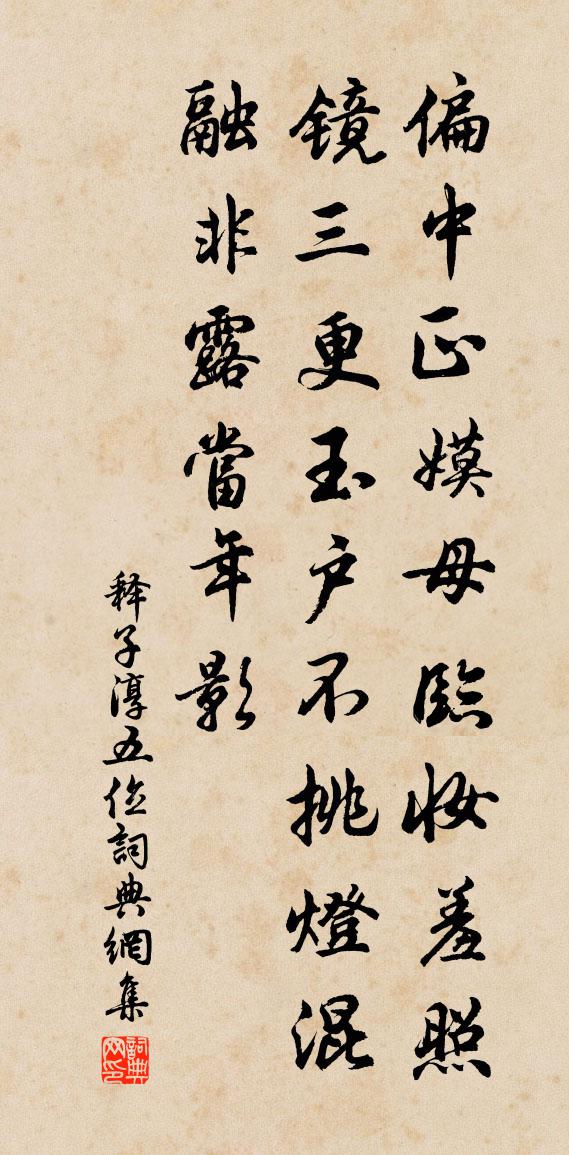 偏中正嫫母臨妆羞照
镜三更玉户不挑燈混
融非露當年影
释子淳五位詞典網集
詞典网印